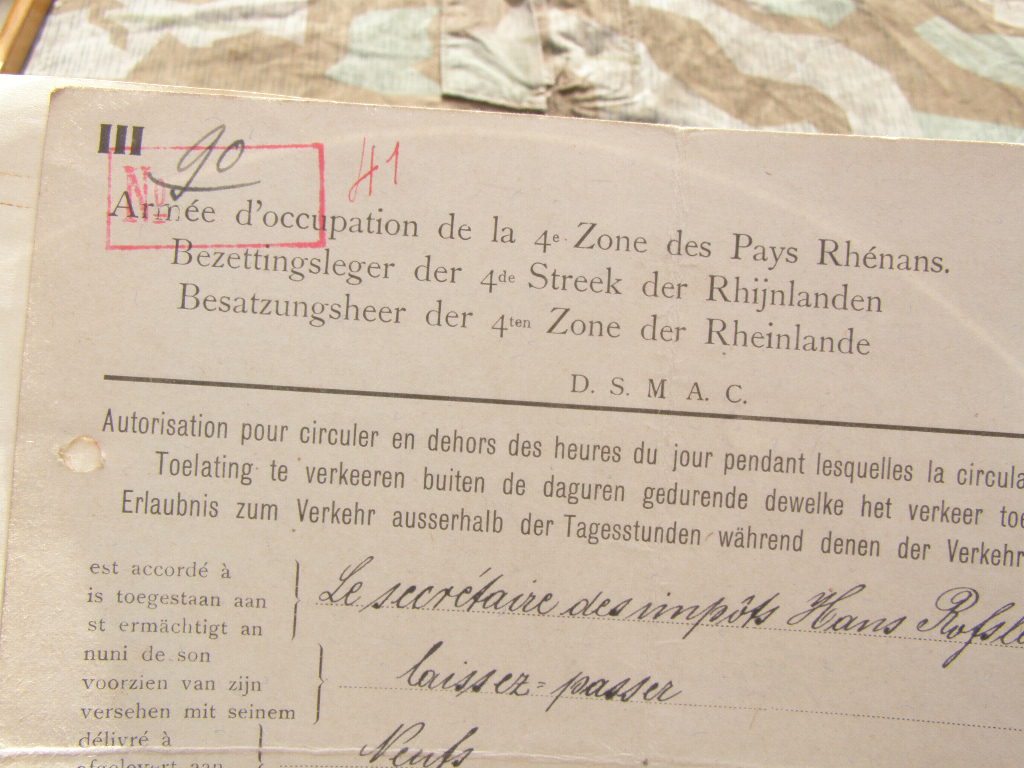 III
90
41
No
Armée d'occupation de la 4e Zone des Pays Rhénans.
Bezettingsleger der 4de Streek der Rhijnlanden
Besatzungsheer der 4ten Zone der Rheinlande
D. S. M. A. C.
Autorisation pour circuler en dehors des heures du jour pendant lesquelles la circula
Toelating te verkeeren buiten de daguren gedurende dewelke het verkeer toe
Erlaubnis zum Verkehr ausserhalb der Tagesstunden während denen der Verkehr
est accordé à
is toegestaan aan
st ermächtigt an
Le secrétaire des impôts Hans
nuni de son
voorzien van zijn
versehen mit seinem
laissez-passer
délivré à
afgeleverd aan